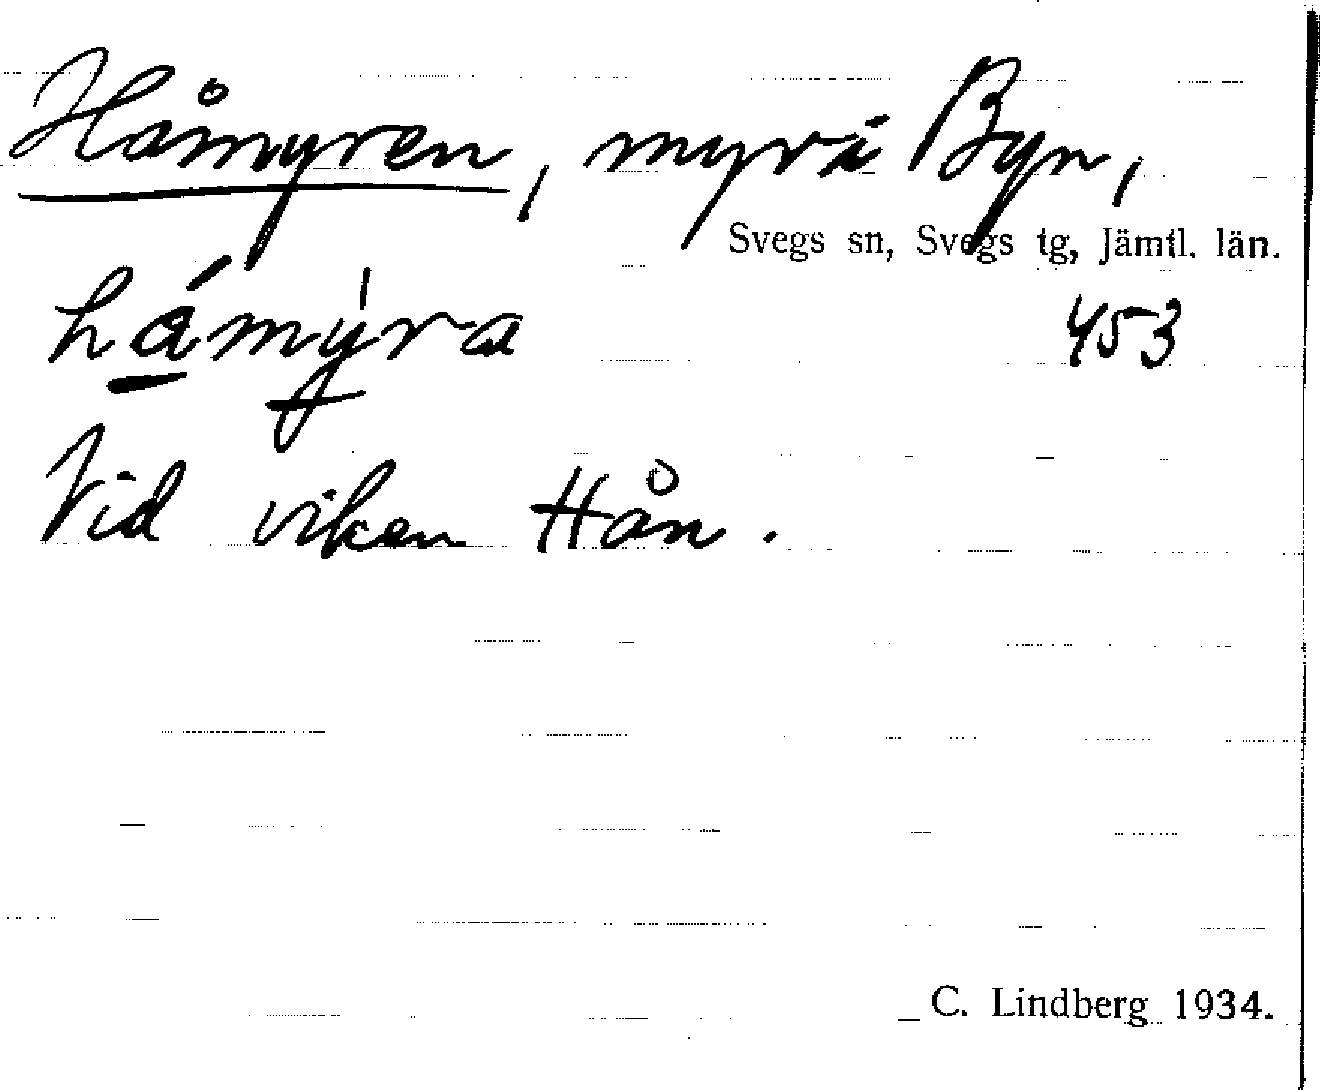 Håmyren, myr i Byn,
Svegs sn, Svegs tg, Jämtl. län.
hámýra
453
Vid viken Hån.
C. Lindberg 1934.